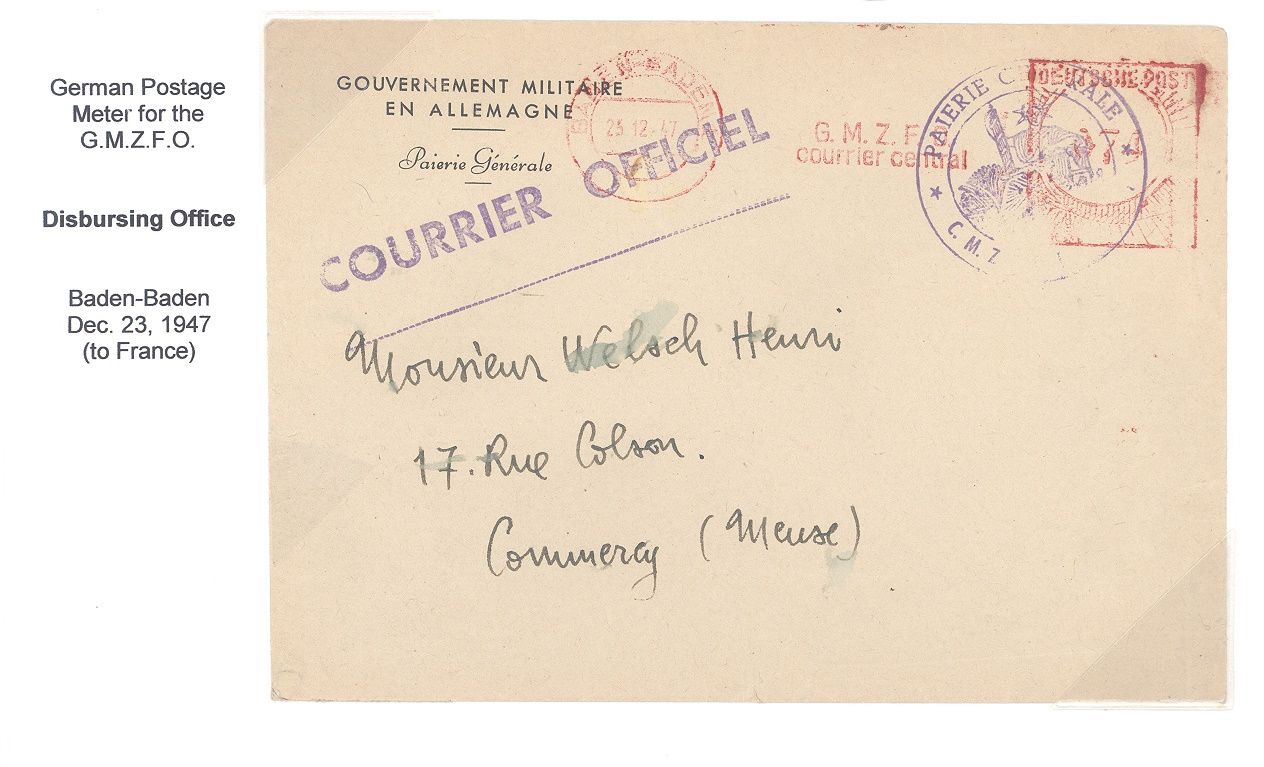 German Postage
Meter for the
G.M.Z.F.O.
Disbursing Office
Baden-Baden
Dec. 23, 1947
(to France)
GOUVERNEMENT MILITAIRE
EN ALLEMAGNE
Paierie Générale
BADEN-BADEN
23.12.47
COURRIER OFFICIEL
G. M. Z. F.
courrier central
PAIERIE
C. M. Z
DEUTSCHE POST
Monsieur Welsch Henri
17. Rue Colson.
Commercy (Meuse)